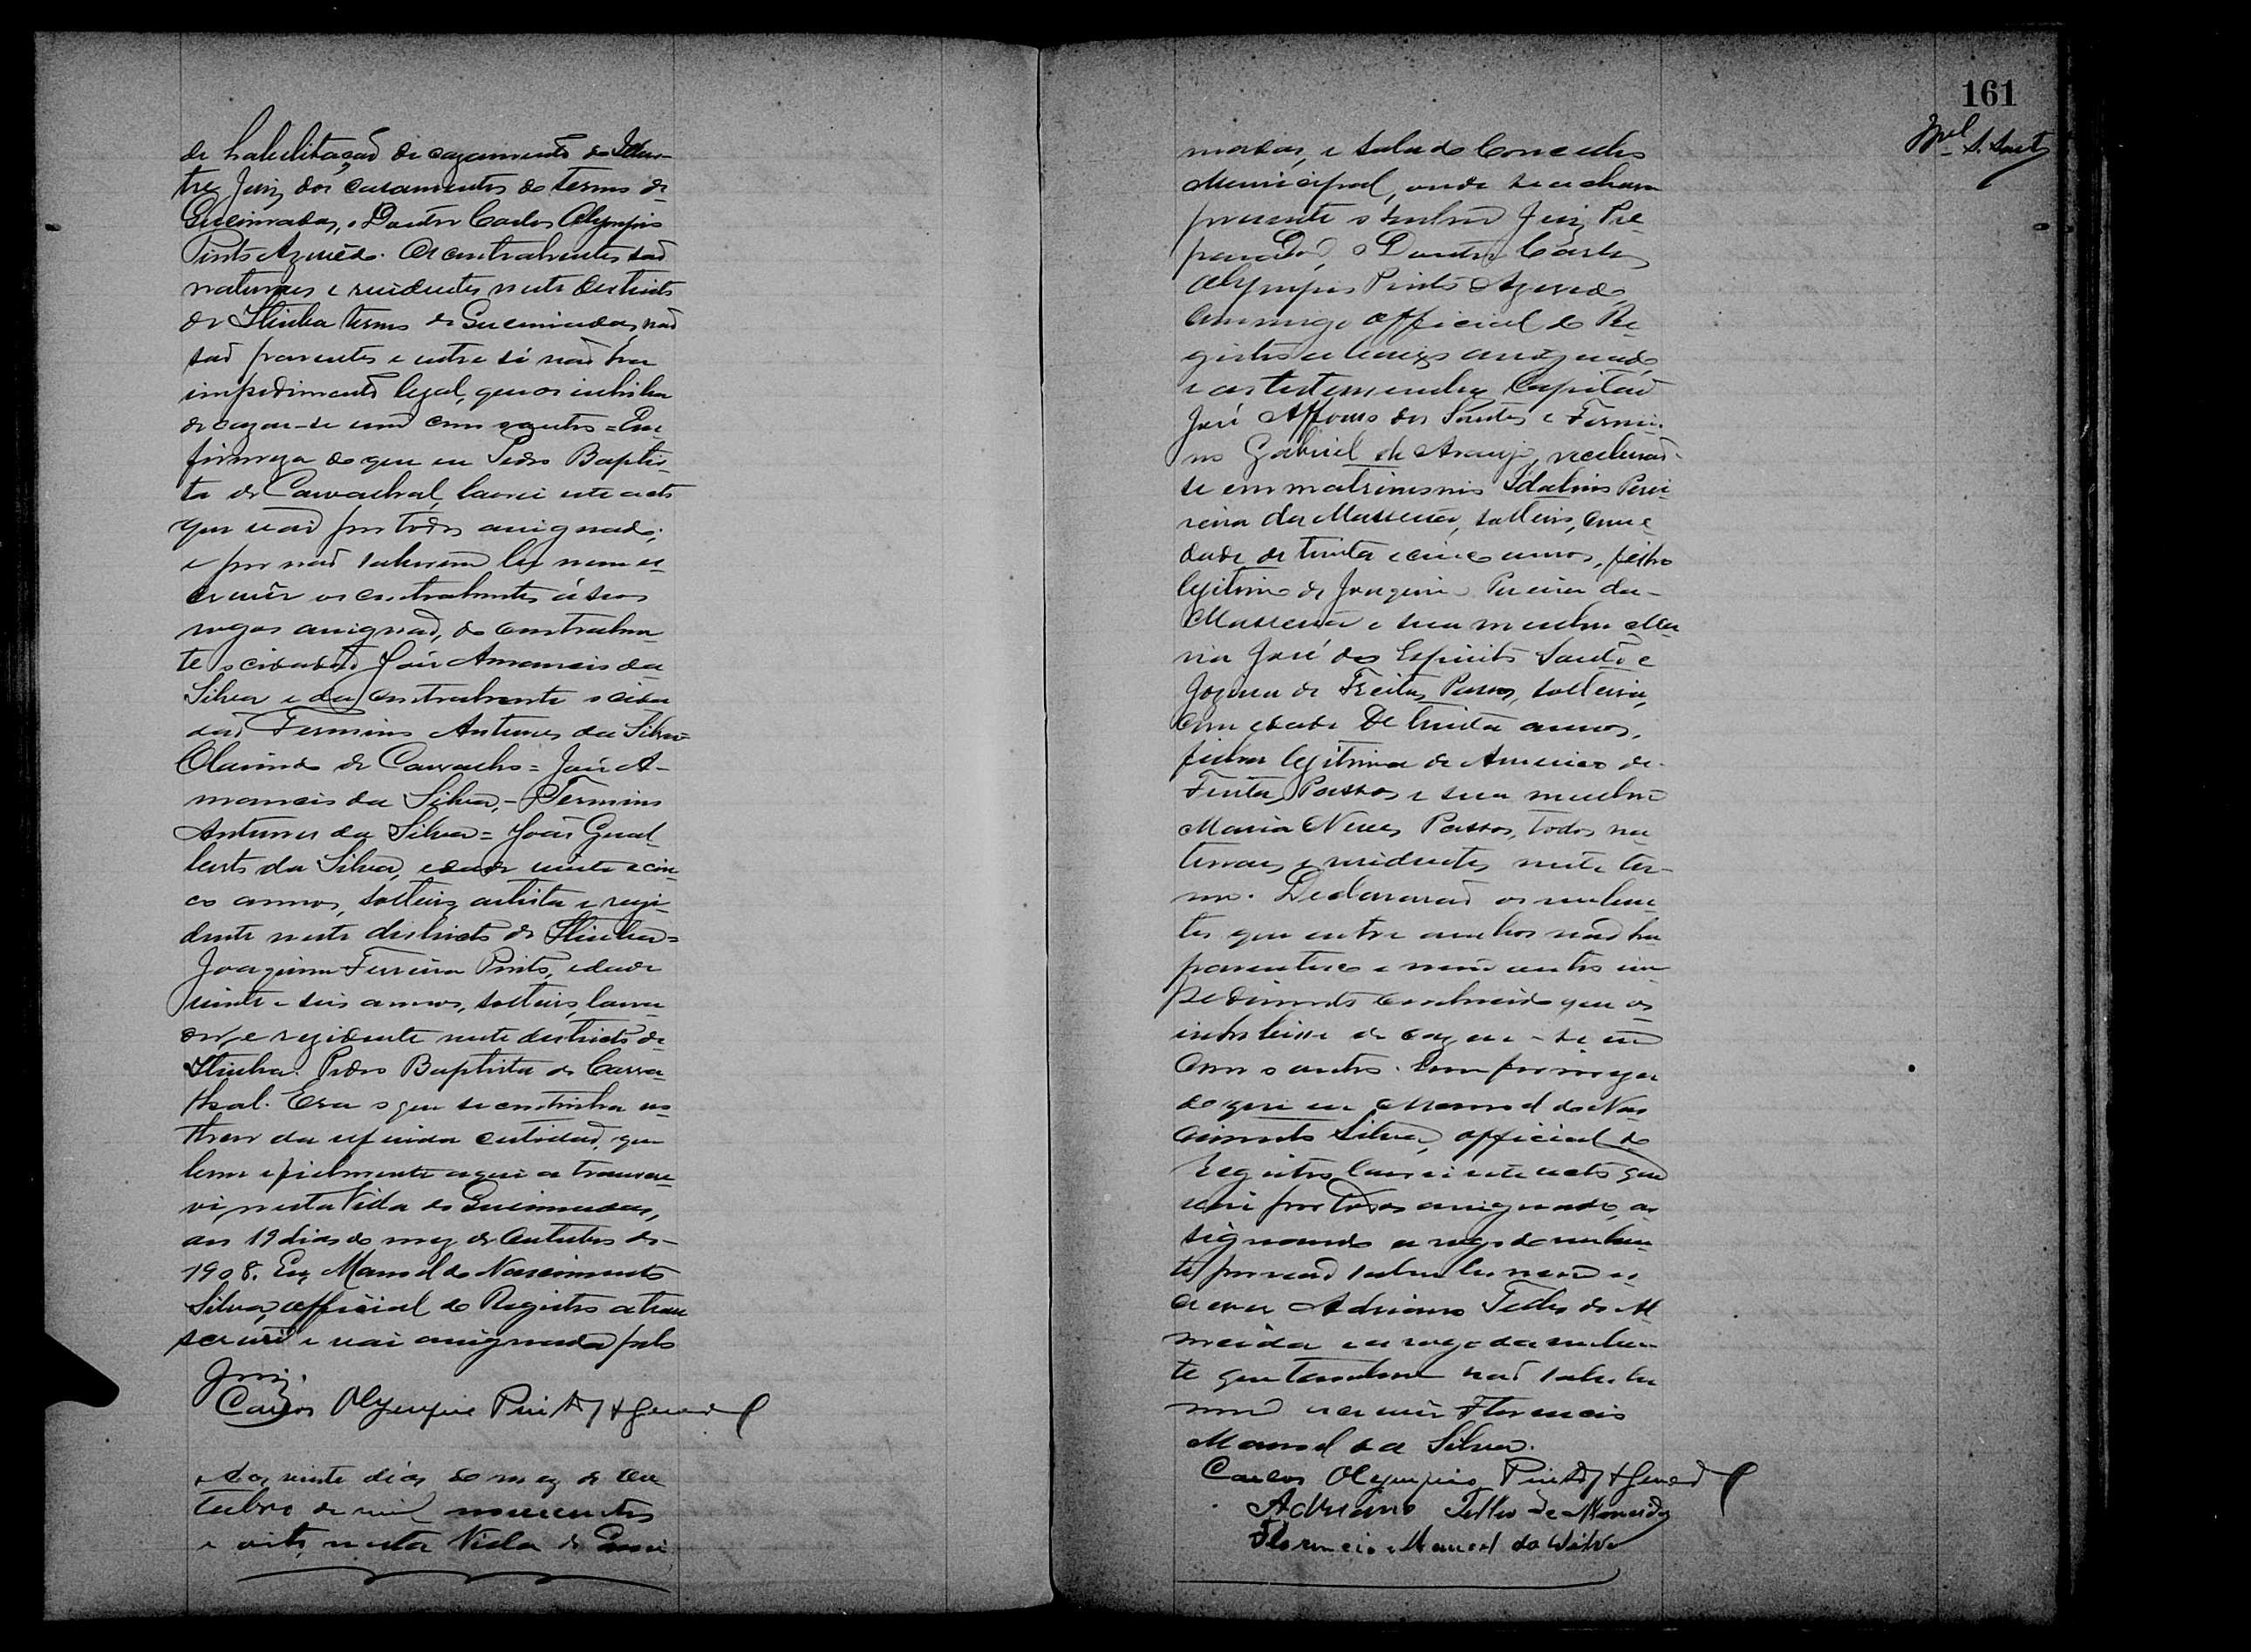 de habilitação de cazamento do Illus-
tre Juiz dos casamentos do termo de
Queimadas, o Doutor Carlos Olympio
Pinto Azevêdo. Os contrahentes são
naturaes e residentes neste districto
de Itiuba termo de Queimadas, não
são parentes e entre si não ha
impedimento legal, que os inhiba
de cazar-se um com o outro = Em
firmeza do que eu Pedro Baptis-
ta de Carvalhal, lavrei este acto
que vai por todos assignado;
e por não saberem ler nem es-
crever os contrahentes á seos
rogos assignão, do contrahen-
te o cidadão José Amancio da
Silva e da contrahente o cida-
dão Fermino Antunes da Silva =
Olavindo de Carvalho = José A-
mancio da Silva, - Fermino
Antunes da Silva = João Gual-
berto da Silva, edade vinte e cin-
co annos, solteiro, artista e rezi-
dente neste districto de Itiuba =
Joaquim Ferreira Pinto, edade
vinte e seis annos, solteiro, lavra-
dor, e rezidente neste districto de
Itiuba. Pedro Baptista de Carva-
lhal. Era o que se continha no
theor da referida certidão, que
bem e fielmente aqui a transcre-
vi nesta Villa de Queimadas,
aos 19 dias do mez de Outubro de
1908. Eu, Manoel do Nascimento
Silva, official do Registro a tran
screvi e vai assignada pelo
Juiz.
Carlos Olympio Pinto Azevedo
Aos vinte dias do mez de Ou
tubro de mil novecentos
e oito, nesta Villa de Quei
161
madas, e sala do Concelho
Municipal, onde se achava
presente o Senhor Juiz Pre-
parador, o Doutor Carlos
Olympio Pinto Azevedo,
commigo official do Re
gistro abaixo assignado,
e as testemunhas Capitão
José Affonso dos Santos e Fermi-
no Gabriel de Araujo, receberão-
se em matrimonio Idalino Perei-
reira da Massena, solteiro, com e
dade de trinta e cinco annos, filho
legitimo de Joaquim Pereira da
Massena e sua mulher Ma
ria José do Espirito Santo e
Jozina de Freitas Passos, solteira,
com edade de trinta annos,
filha legitima de Americo de
Freitas Passos e sua mulher
Maria Neves Passos, todos na
turaes e residentes neste ter-
mo. Declararão os nuben
tes que entre ambos não ha
parentesco e nem outro im
pedimento conhecido que os
inhibisse de cazar-se um
com o outro. Em firmeza
do que eu Manoel do Nas
cimento Silva, official do
Registro lavrei este acto que
vai por todos assignado, as
signando a rogo do nuben
te por não saber ler nem es
crever Adriano Telles de Al
meida e a rogo da nuben
te que tambem não sabe ler
nem escrever Florencio
Manoel da Silva.
Carlos Olympio Pinto Azevedo
Adriano Telles de Almeida
Florencio Manoel da Silva